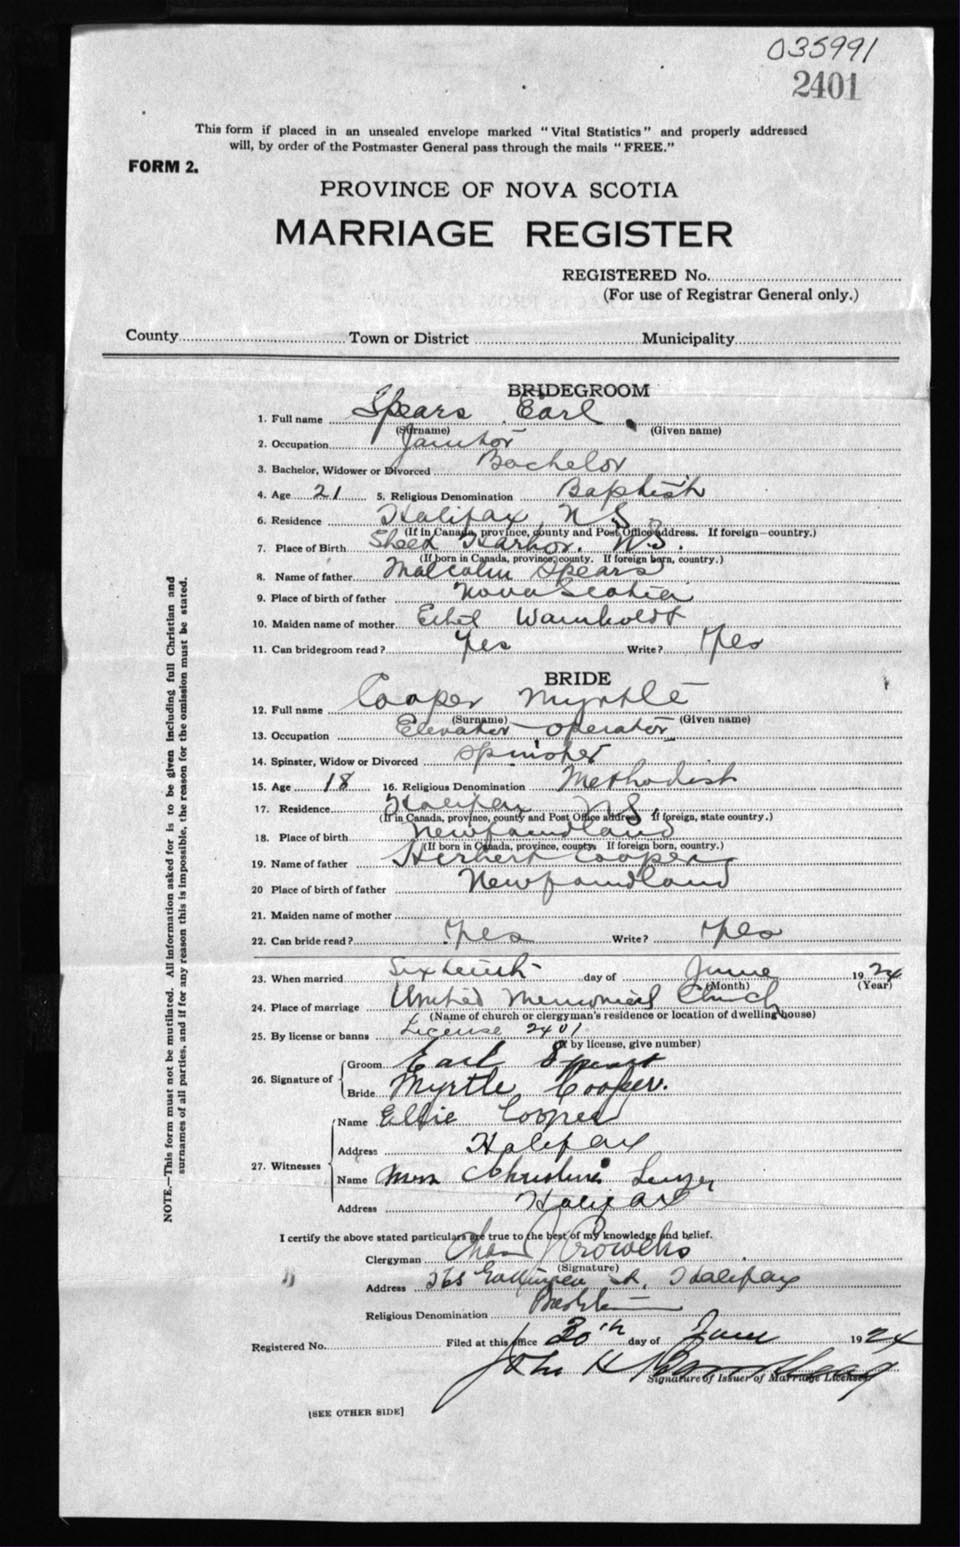 035991
2401
This form if placed in an unsealed envelope marked "Vital Statistics" and properly addressed
will, by order of the Postmaster General pass through the mails "FREE."
FORM 2.
PROVINCE OF NOVA SCOTIA
MARRIAGE REGISTER
REGISTERED No.
(For use of Registrar General only.)
County Town or District Municipality
BRIDEGROOM
1. Full name Spears Earl
(Surname) (Given name)
2. Occupation Janitor
3. Bachelor, Widower or Divorced Bachelor
4. Age 21 5. Religious Denomination Baptist
6. Residence Halifax NS
(If in Canada, province, county and Post Office address. If foreign—country.)
7. Place of Birth Sheet Harbor. N.S.
(If born in Canada, province, county. If foreign born, country.)
8. Name of father Malcolm Spears
9. Place of birth of father Nova Scotia
10. Maiden name of mother Ethel Wamboldt
11. Can bridegroom read? Yes Write? Yes
BRIDE
12. Full name Cooper Myrtle
(Surname) (Given name)
13. Occupation Elevator operator
14. Spinster, Widow or Divorced Spinster
15. Age 18 16. Religious Denomination Methodist
17. Residence Halifax NS
(If in Canada, province, county and Post Office address. If foreign, state country.)
18. Place of birth Newfoundland
(If born in Canada, province, county. If foreign born, country.)
19. Name of father Herbert Cooper
20 Place of birth of father Newfoundland
21. Maiden name of mother
22. Can bride read? Yes Write? Yes
23. When married Sixteenth day of June 1924
(Month) (Year)
24. Place of marriage United Memorial Church
(Name of church or clergyman's residence or location of dwelling house)
25. By license or banns License 2401
(If by license, give number)
26. Signature of Groom Earl Spears
Bride Myrtle Cooper.
27. Witnesses Name Effie Cooper
Address Halifax
Name Mrs Christine
Address Halifax
I certify the above stated particulars are true to the best of my knowledge and belief.
Clergyman Chas
(Signature)
Address St, Halifax
Religious Denomination
Registered No. Filed at this office 30th day of June 1924
John H
Signature of Issuer of Marriage Licenses
[SEE OTHER SIDE]
NOTE.—This form must not be mutilated. All information asked for is to be given including full Christian and
surnames of all parties, and if for any reason this is impossible, the reason for the omission must be stated.